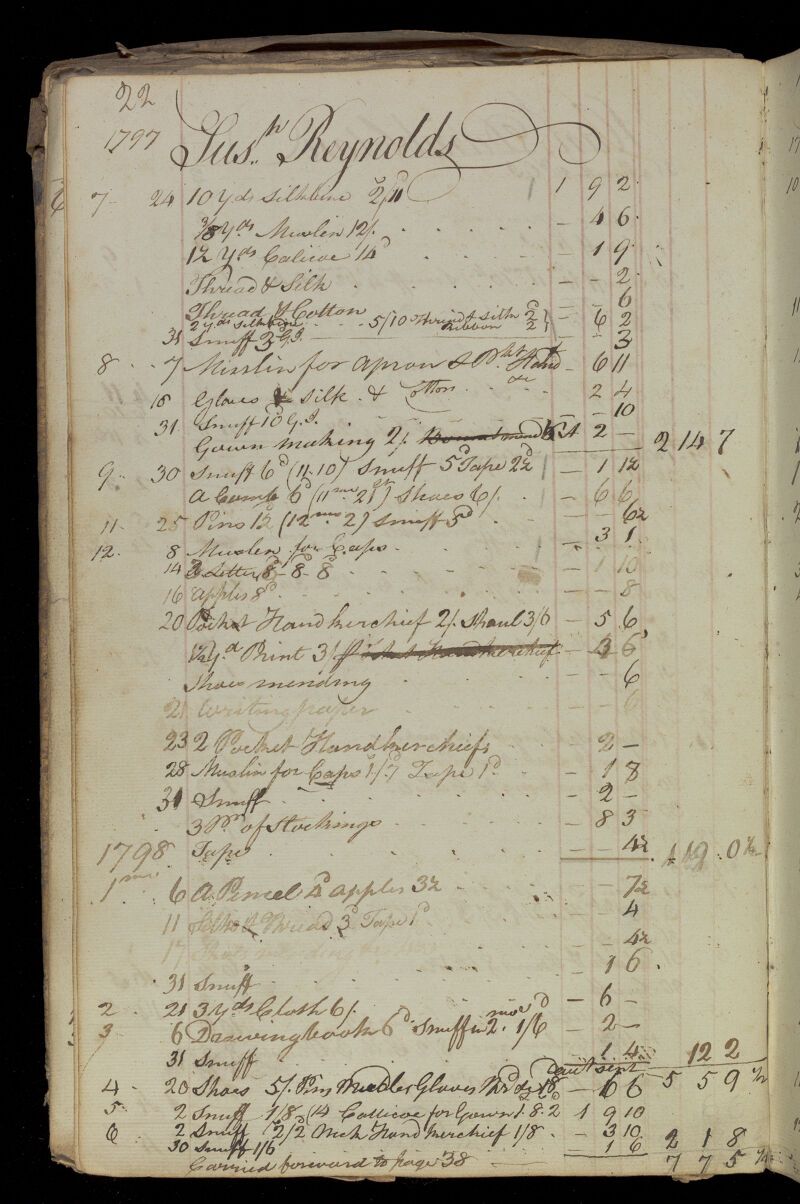 22
1797 Sus.h Reynolds
7 24 10 yds Silkbine 2/11 1 9 2
yds Muslin 12/. — 4 6
1½ yds Calicoe 14d — 1 9
Thread & Silk — — 2
Thread & Cotton — — 6
2 yds silkbine 5/10 Thread & silk 2d Ribbon 2d — 6 2
31 Snuff 3d — — 3
8 7 Muslin for apron & — 6 11
18 Gloves & Silk & Cotton — 2 4
31 Snuff 10d — — 10
Gown making 2/. — 2 — 2 14 7
9 30 Snuff 6d (11.10) Snuff 5d Tape 2½d — 1 1½
A Comb 6d (11mo 21) Shoes 6/. — 6 6
11 25 Pins 1½ (12mo 2) Snuff 5d — — 6½
12 8 Muslin for Caps — 3 1
14 3 Letters 8d - 8d - 8d — 1 10
16 apples 8d — — 8
20 Pocket Handkerchief 2/. Shaul 3/6 — 5 6
yd Print 3/ — 3 6
Shoes mending — — 6
21 Writing paper — — 6
23 2 Pocket Handkerchiefs — 2 —
28 Muslin for Caps 1/7 Tape 1d — 1 8
31 Snuff — 2 —
3 Pr of Stockings — 8 3
1798 Tape — — 4½ 1 19 0½
1mo 6 A Pencel 4d apples 3½ — — 7½
11 Thread 3d Tape 1d — — 4
17 mending — — 4½
31 Snuff — 1 6
2 21 3 yds Cloth 6/. — 6 —
3 6 Drawing book 6d Snuff in 2mo 1/6 — 2 —
31 Snuff 1 4 12 2
4 20 Shoes 5/. Pins Needles Gloves — 6 6 5 5 9½
5 2 Snuff 1/8 (14 Callicoe for Gown 1.8.2 1 9 10
6 2 Snuff 2/2 Neck Handkerchief 1/8 — 3 10 2 1 8
30 Snuff 1/6 1 6
Carried forward to page 38 7 7 5½